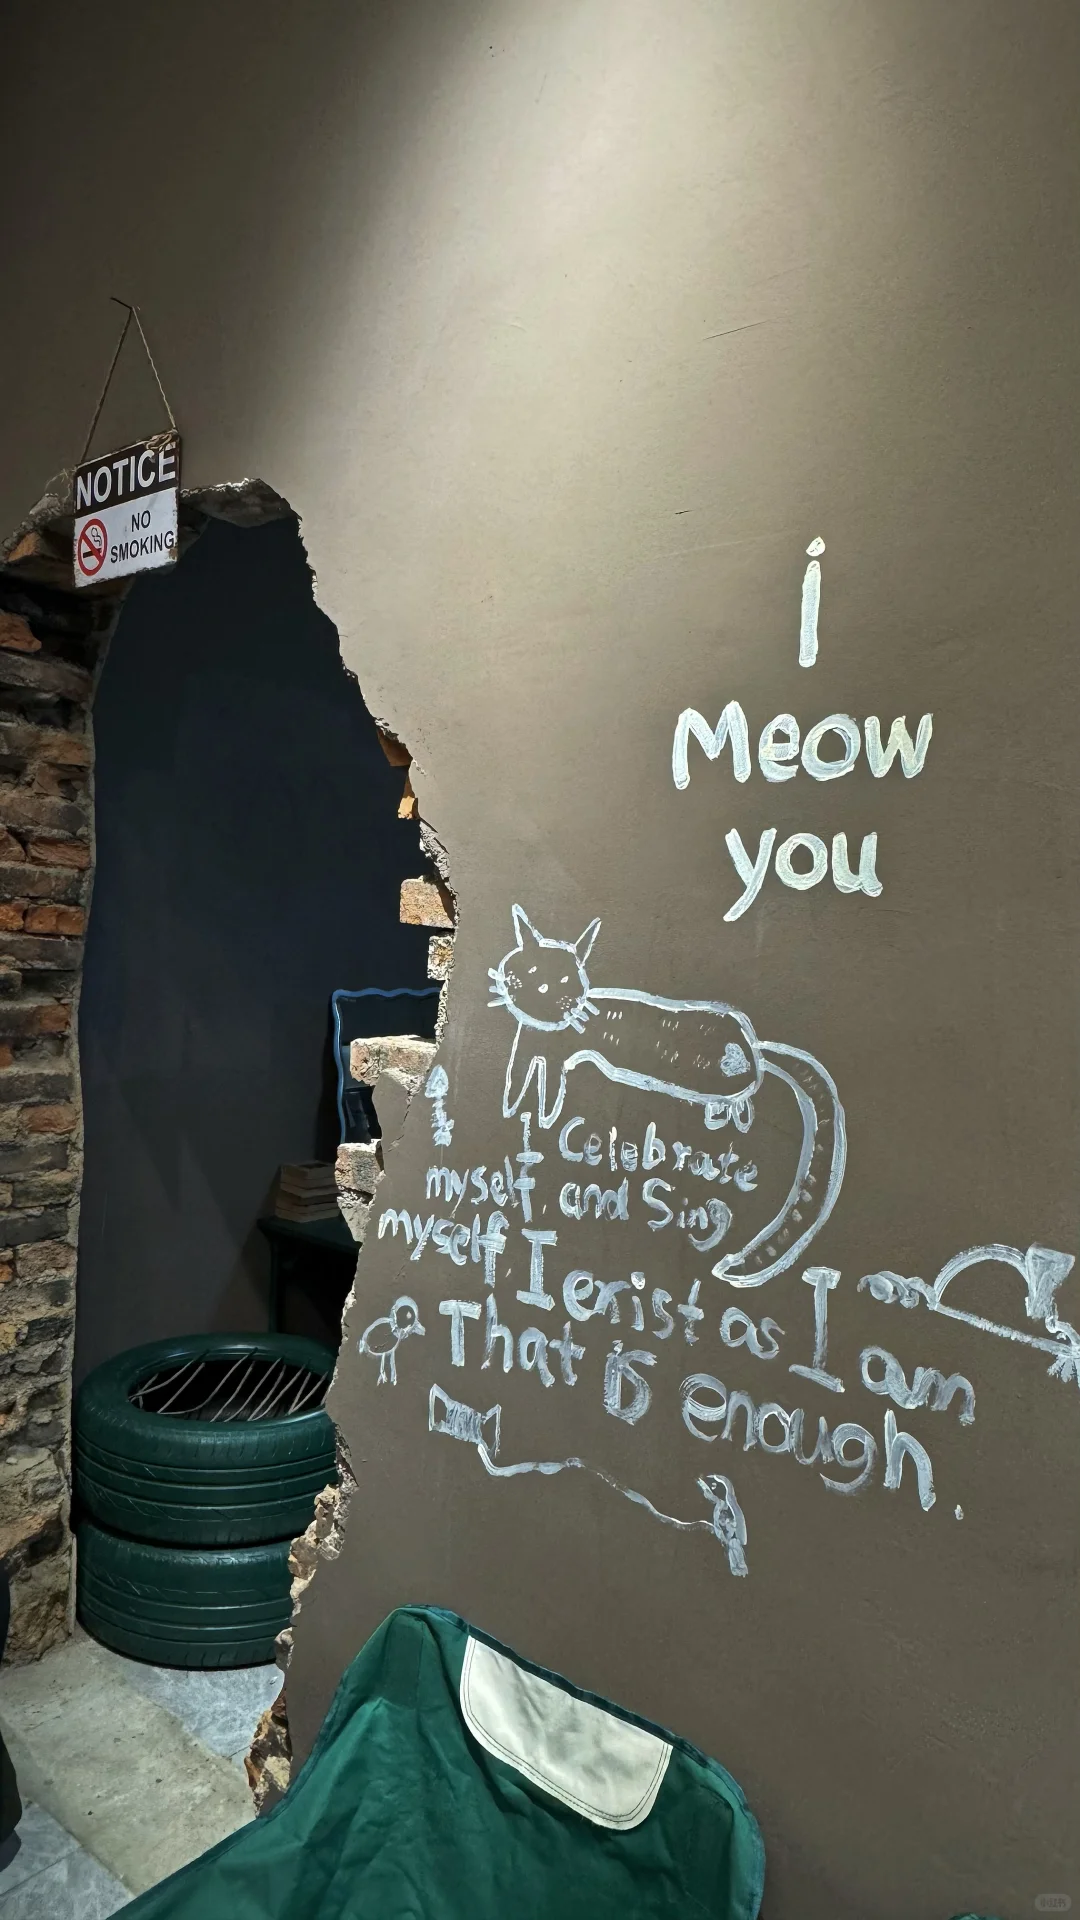 NOTICE
NO
SMOKING
i
Meow
you
I Celebrate
myself, and Sing
myself I
I erist as I am
That is enough.